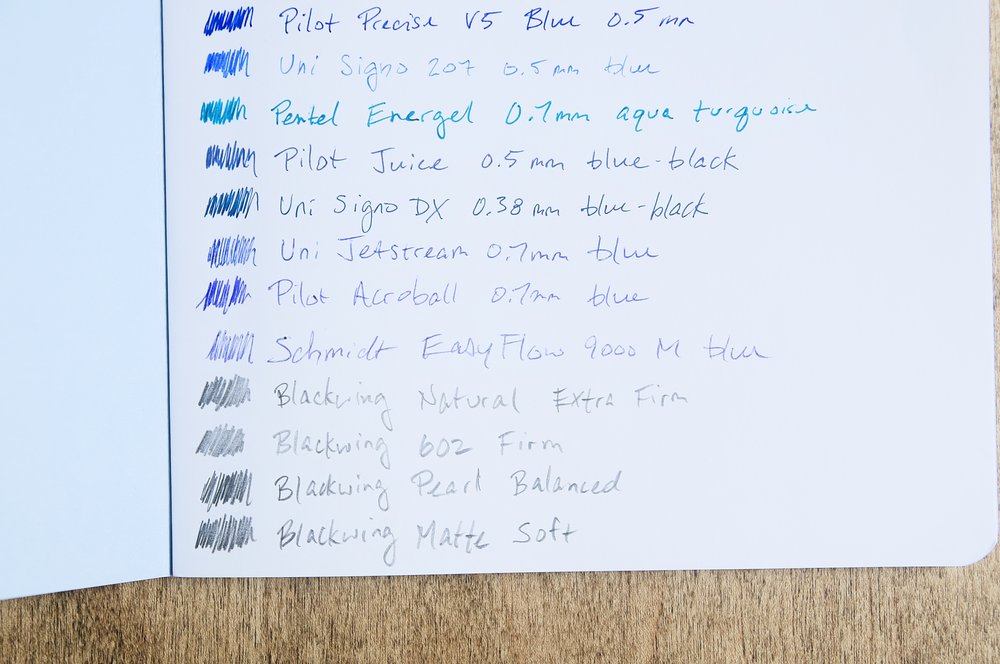 Pilot Precise V5 Blue 0.5 mm
Uni Signo 207 0.5 mm blue
Pentel Energel 0.7mm aqua turquoise
Pilot Juice 0.5 mm blue-black
Uni Signo DX 0.38 mm blue-black
Uni Jetstream 0.7mm blue
Pilot Acroball 0.7mm blue
Schmidt EasyFlow 9000 M blue
Blackwing Natural Extra Firm
Blackwing 602 Firm
Blackwing Pearl Balanced
Blackwing Matte Soft